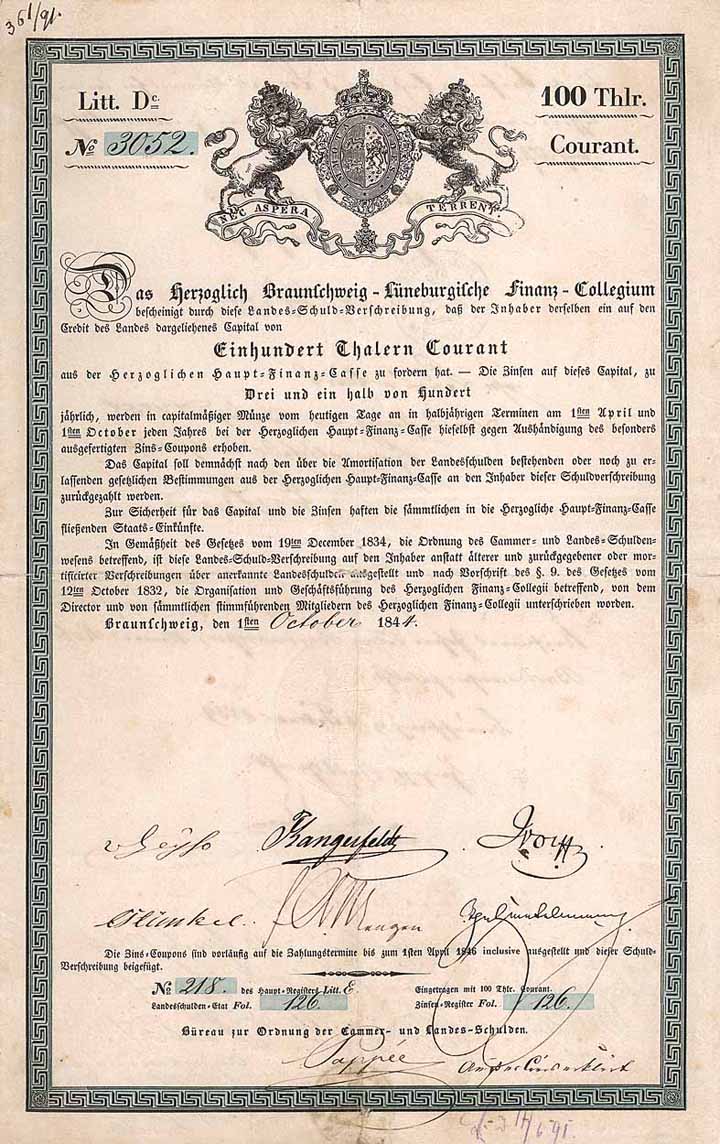 361/91.
Litt. Dc.
100 Thlr.
No 3052.
Courant.
NEC ASPERA TERRENT
Das Herzoglich Braunschweig-Lüneburgische Finanz-Collegium
bescheinigt durch diese Landes-Schuld-Verschreibung, daß der Inhaber derselben ein auf den
Credit des Landes dargeliehenes Capital von
Einhundert Thalern Courant
aus der Herzoglichen Haupt-Finanz-Casse zu fordern hat. — Die Zinsen auf dieses Capital, zu
Drei und ein halb von Hundert
jährlich, werden in capitalmäßiger Münze vom heutigen Tage an in halbjährigen Terminen am 1sten April und
1sten October jeden Jahres bei der Herzoglichen Haupt-Finanz-Casse hieselbst gegen Aushändigung des besonders
ausgefertigten Zins-Coupons erhoben.
Das Capital soll demnächst nach den über die Amortisation der Landesschulden bestehenden oder noch zu er-
lassenden gesetzlichen Bestimmungen aus der Herzoglichen Haupt-Finanz-Casse an den Inhaber dieser Schuldverschreibung
zurückgezahlt werden.
Zur Sicherheit für das Capital und die Zinsen haften die sämmtlichen in die Herzogliche Haupt-Finanz-Casse
fließenden Staats-Einkünfte.
In Gemäßheit des Gesetzes vom 19ten December 1834, die Ordnung des Cammer- und Landes-Schulden-
wesens betreffend, ist diese Landes-Schuld-Verschreibung auf den Inhaber anstatt älterer und zurückgegebener oder mor-
tificirter Verschreibungen über anerkannte Landesschulden ausgestellt und nach Vorschrift des §. 9. des Gesetzes vom
12ten October 1832, die Organisation und Geschäftsführung des Herzoglichen Finanz-Collegii betreffend, von dem
Director und von sämmtlichen stimmführenden Mitgliedern des Herzoglichen Finanz-Collegii unterschrieben worden.
Braunschweig, den 1sten October 1844.
Langerfeldt
Die Zins-Coupons sind vorläufig auf die Zahlungstermine bis zum 1sten April 1846 inclusive ausgestellt und dieser Schuld-
Verschreibung beigefügt.
No 218. des Haupt-Registers Litt. E.
Eingetragen mit 100 Thlr. Courant.
Landesschulden-Etat Fol. 126.
Zinsen-Register Fol. 126.
Büreau zur Ordnung der Cammer- und Landes-Schulden.
Pappée